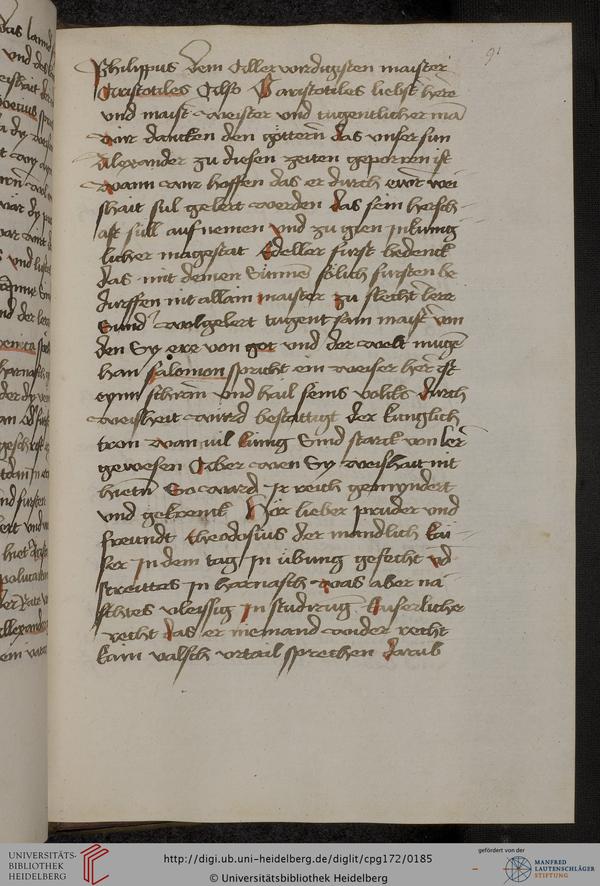 91
Philippus dem Aller wirdigisten maister
Aristotiles Also O aristotiles liebst here
und maist weister und tugentlicher ma
wir dancken den göttern das unser sun
Alexander zu diesen zeiten geporren ist
wann wir hoffen das er durch ewr wei
shait sul gelert werden das sein hersch
aft süll auf nemen und zu gien In kunig
licher magestat Edeller furst bedenck
das mit deinen Sinnen solich fursten be
durffen nit allain maister zu slecht lere
Sund wolgelert tugent sam maist von
den Sy ere von got und der welt mugen
han Salomon spricht ein weiser here ist
eynn schirm und hail seins volcks durch
weisheit wirrd bestattigt der kunglich
tron wan vil kunig Sind starck von lér
gewesen Aber wen Sy weishait nit
hietn So ward Ir reich gemyndert
und gekrenck Hor lieber pruder und
freundt theodosius der mandlich kai
ser In dem tag In übung gefecht vd
streittes In harnasch was aber na
chtes vleissig In studirung kaiserlicher
recht das er niemand wider recht
kain valsch urtail sprechen darub
UNIVERSITÄTS-
BIBLIOTHEK
HEIDELBERG
http://digi.ub.uni-heidelberg.de/diglit/cpg172/0185
© Universitätsbibliothek Heidelberg
gefördert von der
MANFRED
LAUTENSCHLÄGER
STIFTUNG